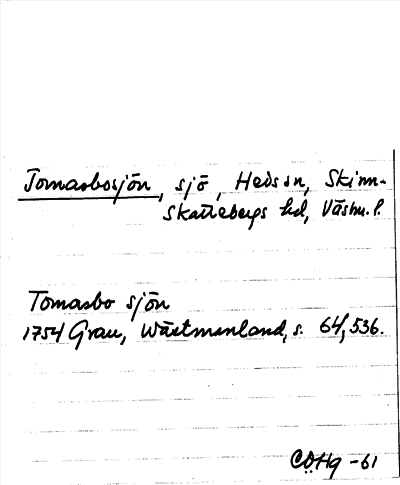 Tomasbosjön, sjö, Heds sn, Skinn-
skattebergs hd, Västm. l.
Tomasbo sjön
1754 Grau, Wästmanland, s. 64, 536.
CÖHg -61